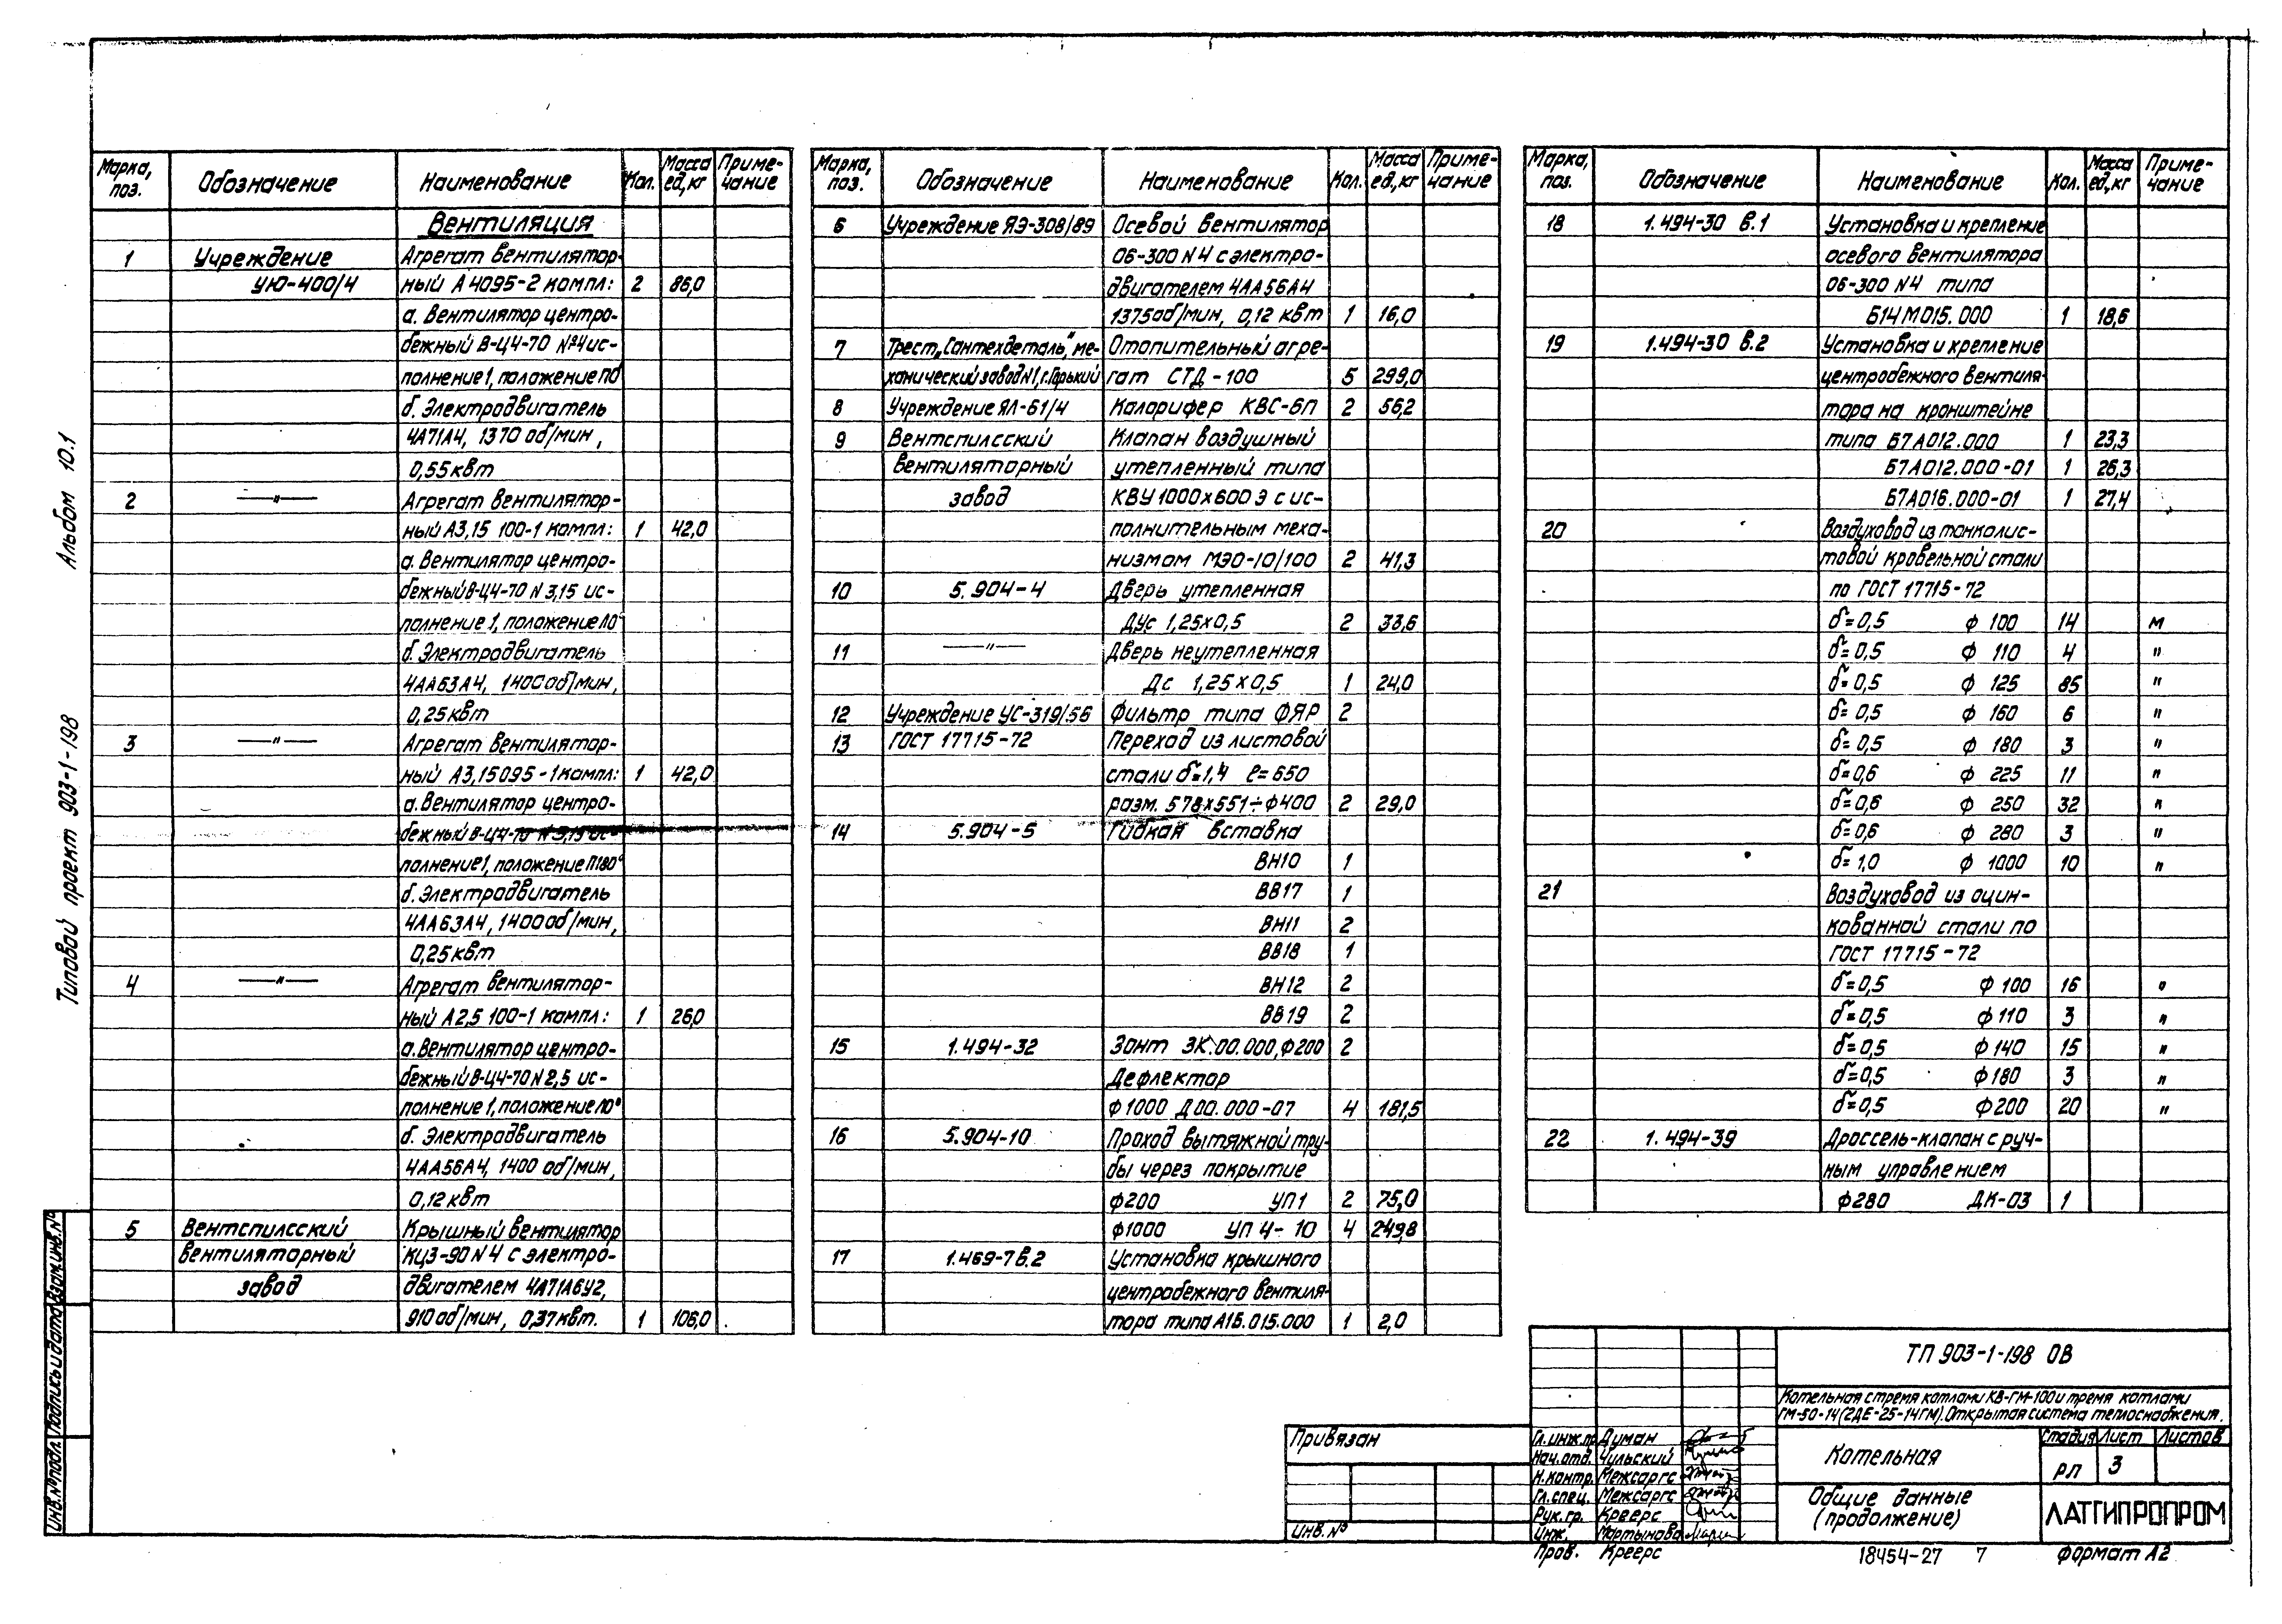 Альбом 10.1
Типовой проект 903-1-198
Марка, поз. Обозначение Наименование Кол. Масса ед,кг Примечание
Вентиляция
1 Учреждение Агрегат вентилятор-
УЮ-400/4 ный А4095-2 компл: 2 86,0
а. Вентилятор центро-
бежный В-Ц4-70 №4 ис-
полнение 1, положение П0
б. Электродвигатель
4А71А4, 1370 об/мин,
0,55 квт
2 —"— Агрегат вентилятор-
ный А3,15 100-1 компл: 1 42,0
а. Вентилятор центро-
бежный В-Ц4-70 N 3,15 ис-
полнение 1, положение Л0°
б. Электродвигатель
4АА63А4, 1400 об/мин,
0,25 квт
3 —"— Агрегат вентилятор-
ный А3,15095-1 компл: 1 42,0
а. Вентилятор центро-
бежный В-Ц4-70 N 3,15 ис-
полнение 1, положение П180°
б. Электродвигатель
4АА63А4, 1400 об/мин,
0,25 квт
4 —"— Агрегат вентилятор-
ный А2,5 100-1 компл: 1 26,0
а. Вентилятор центро-
бежный В-Ц4-70 N 2,5 ис-
полнение 1, положение Л0°
б. Электродвигатель
4АА56А4, 1400 об/мин,
0,12 квт
5 Вентспилсский Крышный вентилятор
вентиляторный КЦ3-90 N 4 с электро-
завод двигателем 4А71А6У2,
910 об/мин, 0,37 квт. 1 106,0
Марка, поз. Обозначение Наименование Кол. Масса ед,кг Примечание
6 Учреждение ЯЭ-308/89 Осевой вентилятор
06-300 N 4 с электро-
двигателем 4АА56А4
1375 об/мин, 0,12 квт 1 16,0
7 Трест „Сантехдеталь", ме- Отопительный агре-
ханический завод N1, г. Горький гат СТД-100 5 299,0
8 Учреждение ЯЛ-61/4 Калорифер КВС-6П 2 56,2
9 Вентспилсский Клапан воздушный
вентиляторный утепленный типа
завод КВУ 1000х600 Э с ис-
полнительным меха-
низмом МЭО-10/100 2 41,3
10 5.904-4 Дверь утепленная
Дус 1,25х0,5 2 33,6
11 —"— Дверь неутепленная
Дс 1,25х0,5 1 24,0
12 Учреждение УС-319/56 Фильтр типа ФЯР 2
13 ГОСТ 17715-72 Переход из листовой
стали δ=1,4 ℓ=650
разм. 578х551÷ф400 2 29,0
14 5.904-5 Гибкая вставка
ВН10 1
ВВ17 1
ВН11 2
ВВ18 1
ВН12 2
ВВ19 2
15 1.494-32 Зонт ЗК.00.000, ф200 2
Дефлектор
ф1000 Д00.000-07 4 181,5
16 5.904-10 Проход вытяжной тру-
бы через покрытие
ф200 УП1 2 75,0
ф1000 УП 4-10 4 249,8
17 1.469-7 в.2 Установка крышного
центробежного вентиля-
тора типа А16.015.000 1 2,0
Марка, поз. Обозначение Наименование Кол. Масса ед,кг Примечание
18 1.494-30 в.1 Установка и крепление
осевого вентилятора
06-300 N4 типа
Б14М015.000 1 18,6
19 1.494-30 в.2 Установка и крепление
центробежного вентиля-
тора на кронштейне
типа Б7А012.000 1 23,3
Б7А012.000-01 1 26,3
Б7А016.000-01 1 27,4
20 Воздуховод из тонколис-
товой кровельной стали
по ГОСТ 17715-72
δ=0,5 ф 100 14 м
δ=0,5 ф 110 4 "
δ=0,5 ф 125 85 "
δ=0,5 ф 160 6 "
δ=0,5 ф 180 3 "
δ=0,6 ф 225 11 "
δ=0,6 ф 250 32 "
δ=0,6 ф 280 3 "
δ=1,0 ф 1000 10 "
21 Воздуховод из оцин-
кованной стали по
ГОСТ 17715-72
δ=0,5 ф 100 16 "
δ=0,5 ф 110 3 "
δ=0,5 ф 140 15 "
δ=0,5 ф 180 3 "
δ=0,5 ф 200 20 "
22 1.494-39 Дроссель-клапан с руч-
ным управлением
ф280 ДК-03 1
ТП 903-1-198 ОВ
Котельная с тремя котлами КВ-ГМ-100 и тремя котлами
ГМ-50-14 (2ДЕ-25-14ГМ). Открытая система теплоснабжения.
Привязан
Инв. №
Гл. инж. пр. Думан
Нач. отд. Чульский
Н. контр. Межсаргс
Гл. спец. Межсаргс
Рук. гр. Креерс
Инж. Мартынова
Пров. Креерс
Котельная
Стадия Лист Листов
РП 3
Общие данные
(продолжение)
ЛАТГИПРОПРОМ
18454-27 7 Формат А2
Инв. № подл. Подпись и дата Взам. инв. №